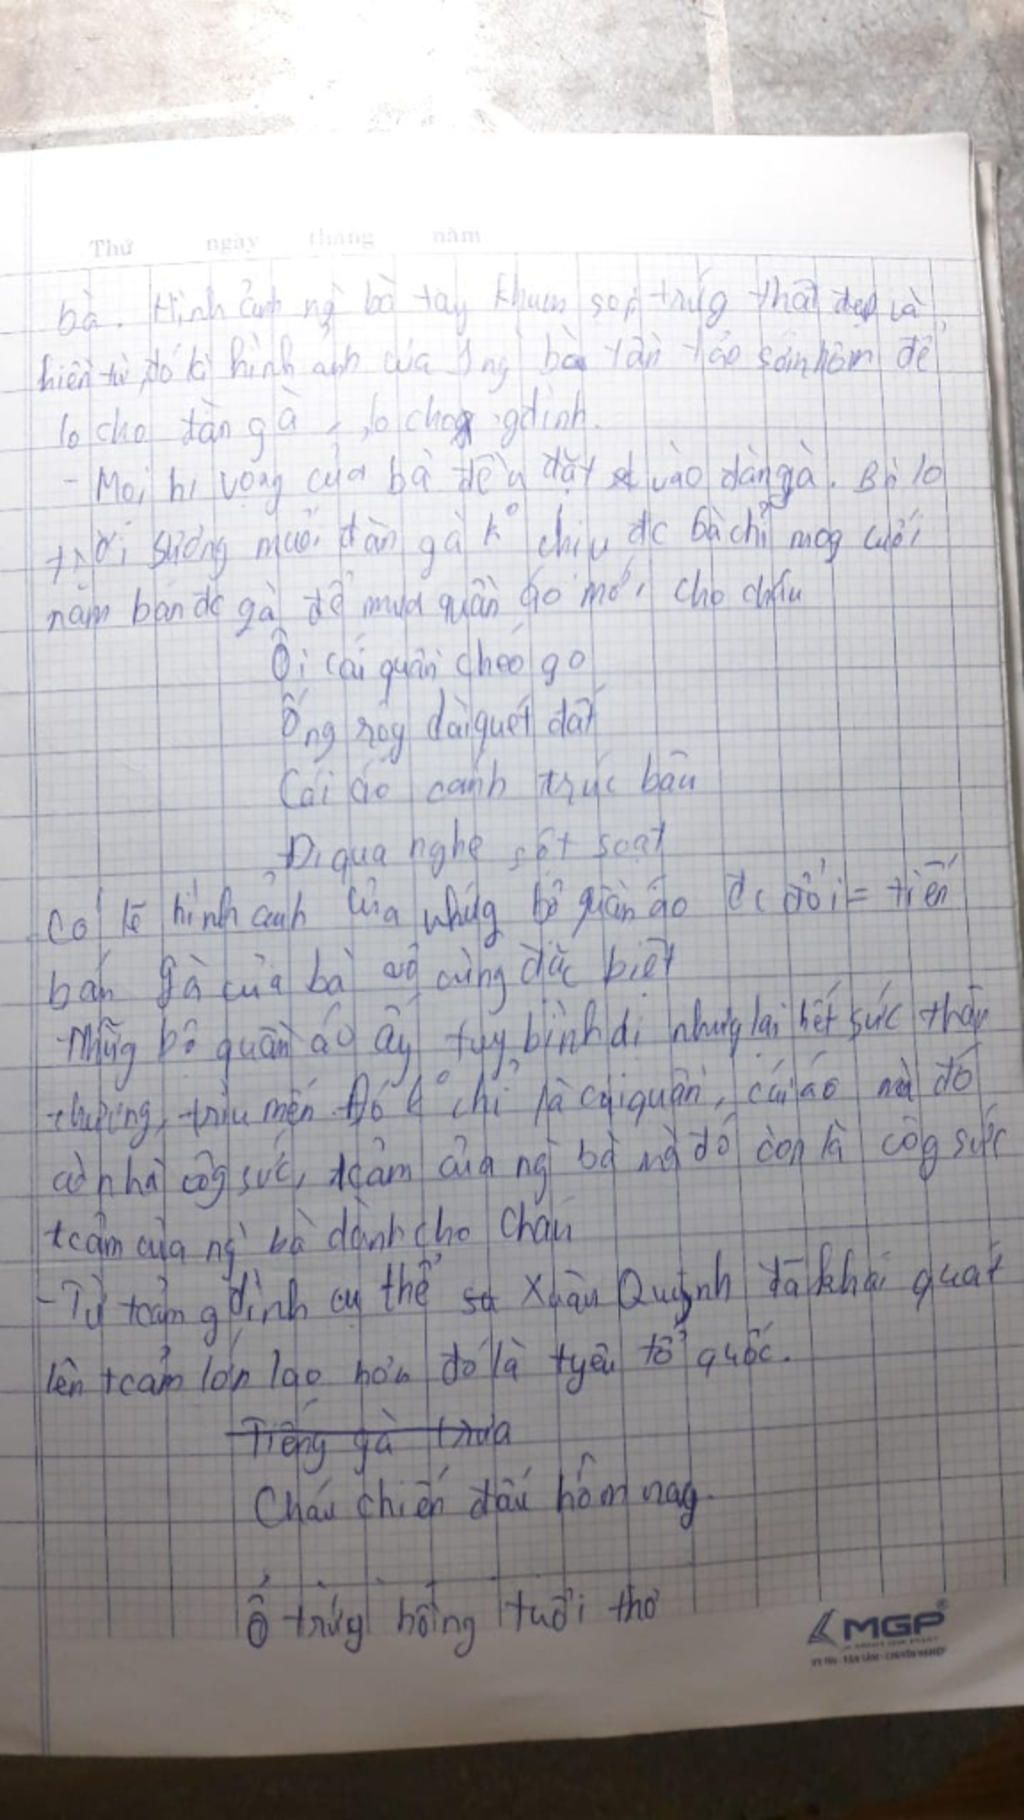 Thứ ngày tháng năm
bà. Hình ảnh ng` bà tay khum soi trứg thật đẹp và
hiền từ, đó là hình ảnh của 1 ng` bà tần tảo sớm hôm để
lo cho đàn gà, lo cho gđình.
- Mọi hi vọng của bà đều đặt vào đàn gà. Bà lo
trời sương muối đàn gà k° chịu đc bà chỉ mog cuối
năm bán đc gà để mua quần áo mới cho cháu
Ôi cái quần chéo go
Ống rộg dài quét đất
Cái áo cánh trúc bâu
Đi qua nghe sột soạt
Có lẽ hình ảnh của nhữg bộ quần áo đc đổi = tiền
bán gà của bà vô cùng đặc biệt
- Nhữg bộ quần áo ấy tuy bình dị nhưg lại hết sức thân
thương, trìu mến. Đó k° chỉ là cái quần, cái áo mà đó
còn là côg sức, tcảm của ng` bà mà đó còn là côg sức
tcảm của ng` bà dành cho cháu
- Từ tcảm gđình cụ thể Xuân Quỳnh đã khái quát
lên tcảm lớn lao hơn đó là tyêu tổ quốc.
Tiếng gà trưa
Cháu chiến đấu hôm nay.
Ổ trứg hồng tuổi thơ
MGP